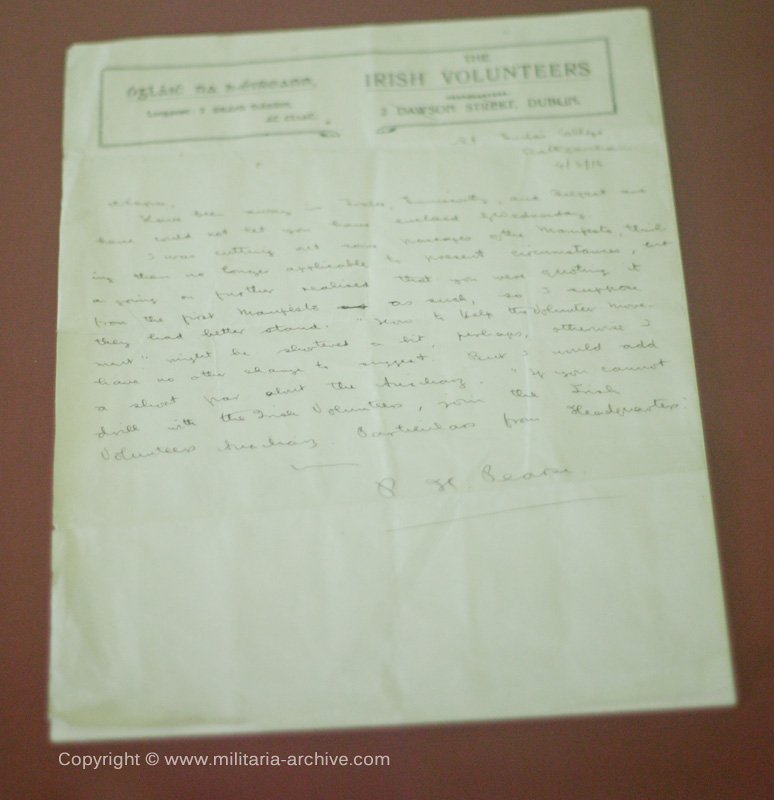 Óglaiċ na h-Éireann.
THE
IRISH VOLUNTEERS
HEADQUARTERS
2 DAWSON STREET, DUBLIN.
St. Enda's College,
Rathfarnham
4/3/16
A chara,
Have been away in Tralee, Limerick, and Belfast and
have could not let you have enclosed yesterday.
I was cutting out some passages of the Manifesto, think-
ing them no longer applicable to present circumstances, but
a going on further realised that you were quoting it
from the first Manifesto as such, so I suppose
they had better stand. "How to Help the Volunteer Move-
ment" might be shortened a bit, perhaps, otherwise I
have no other change to suggest. But I would add
a short par about the Auxiliary. "If you cannot
drill with the Irish Volunteers, join the Irish
Volunteers Auxiliary. Particulars from Headquarters."
P. H. Pearse.
Copyright © www.militaria-archive.com